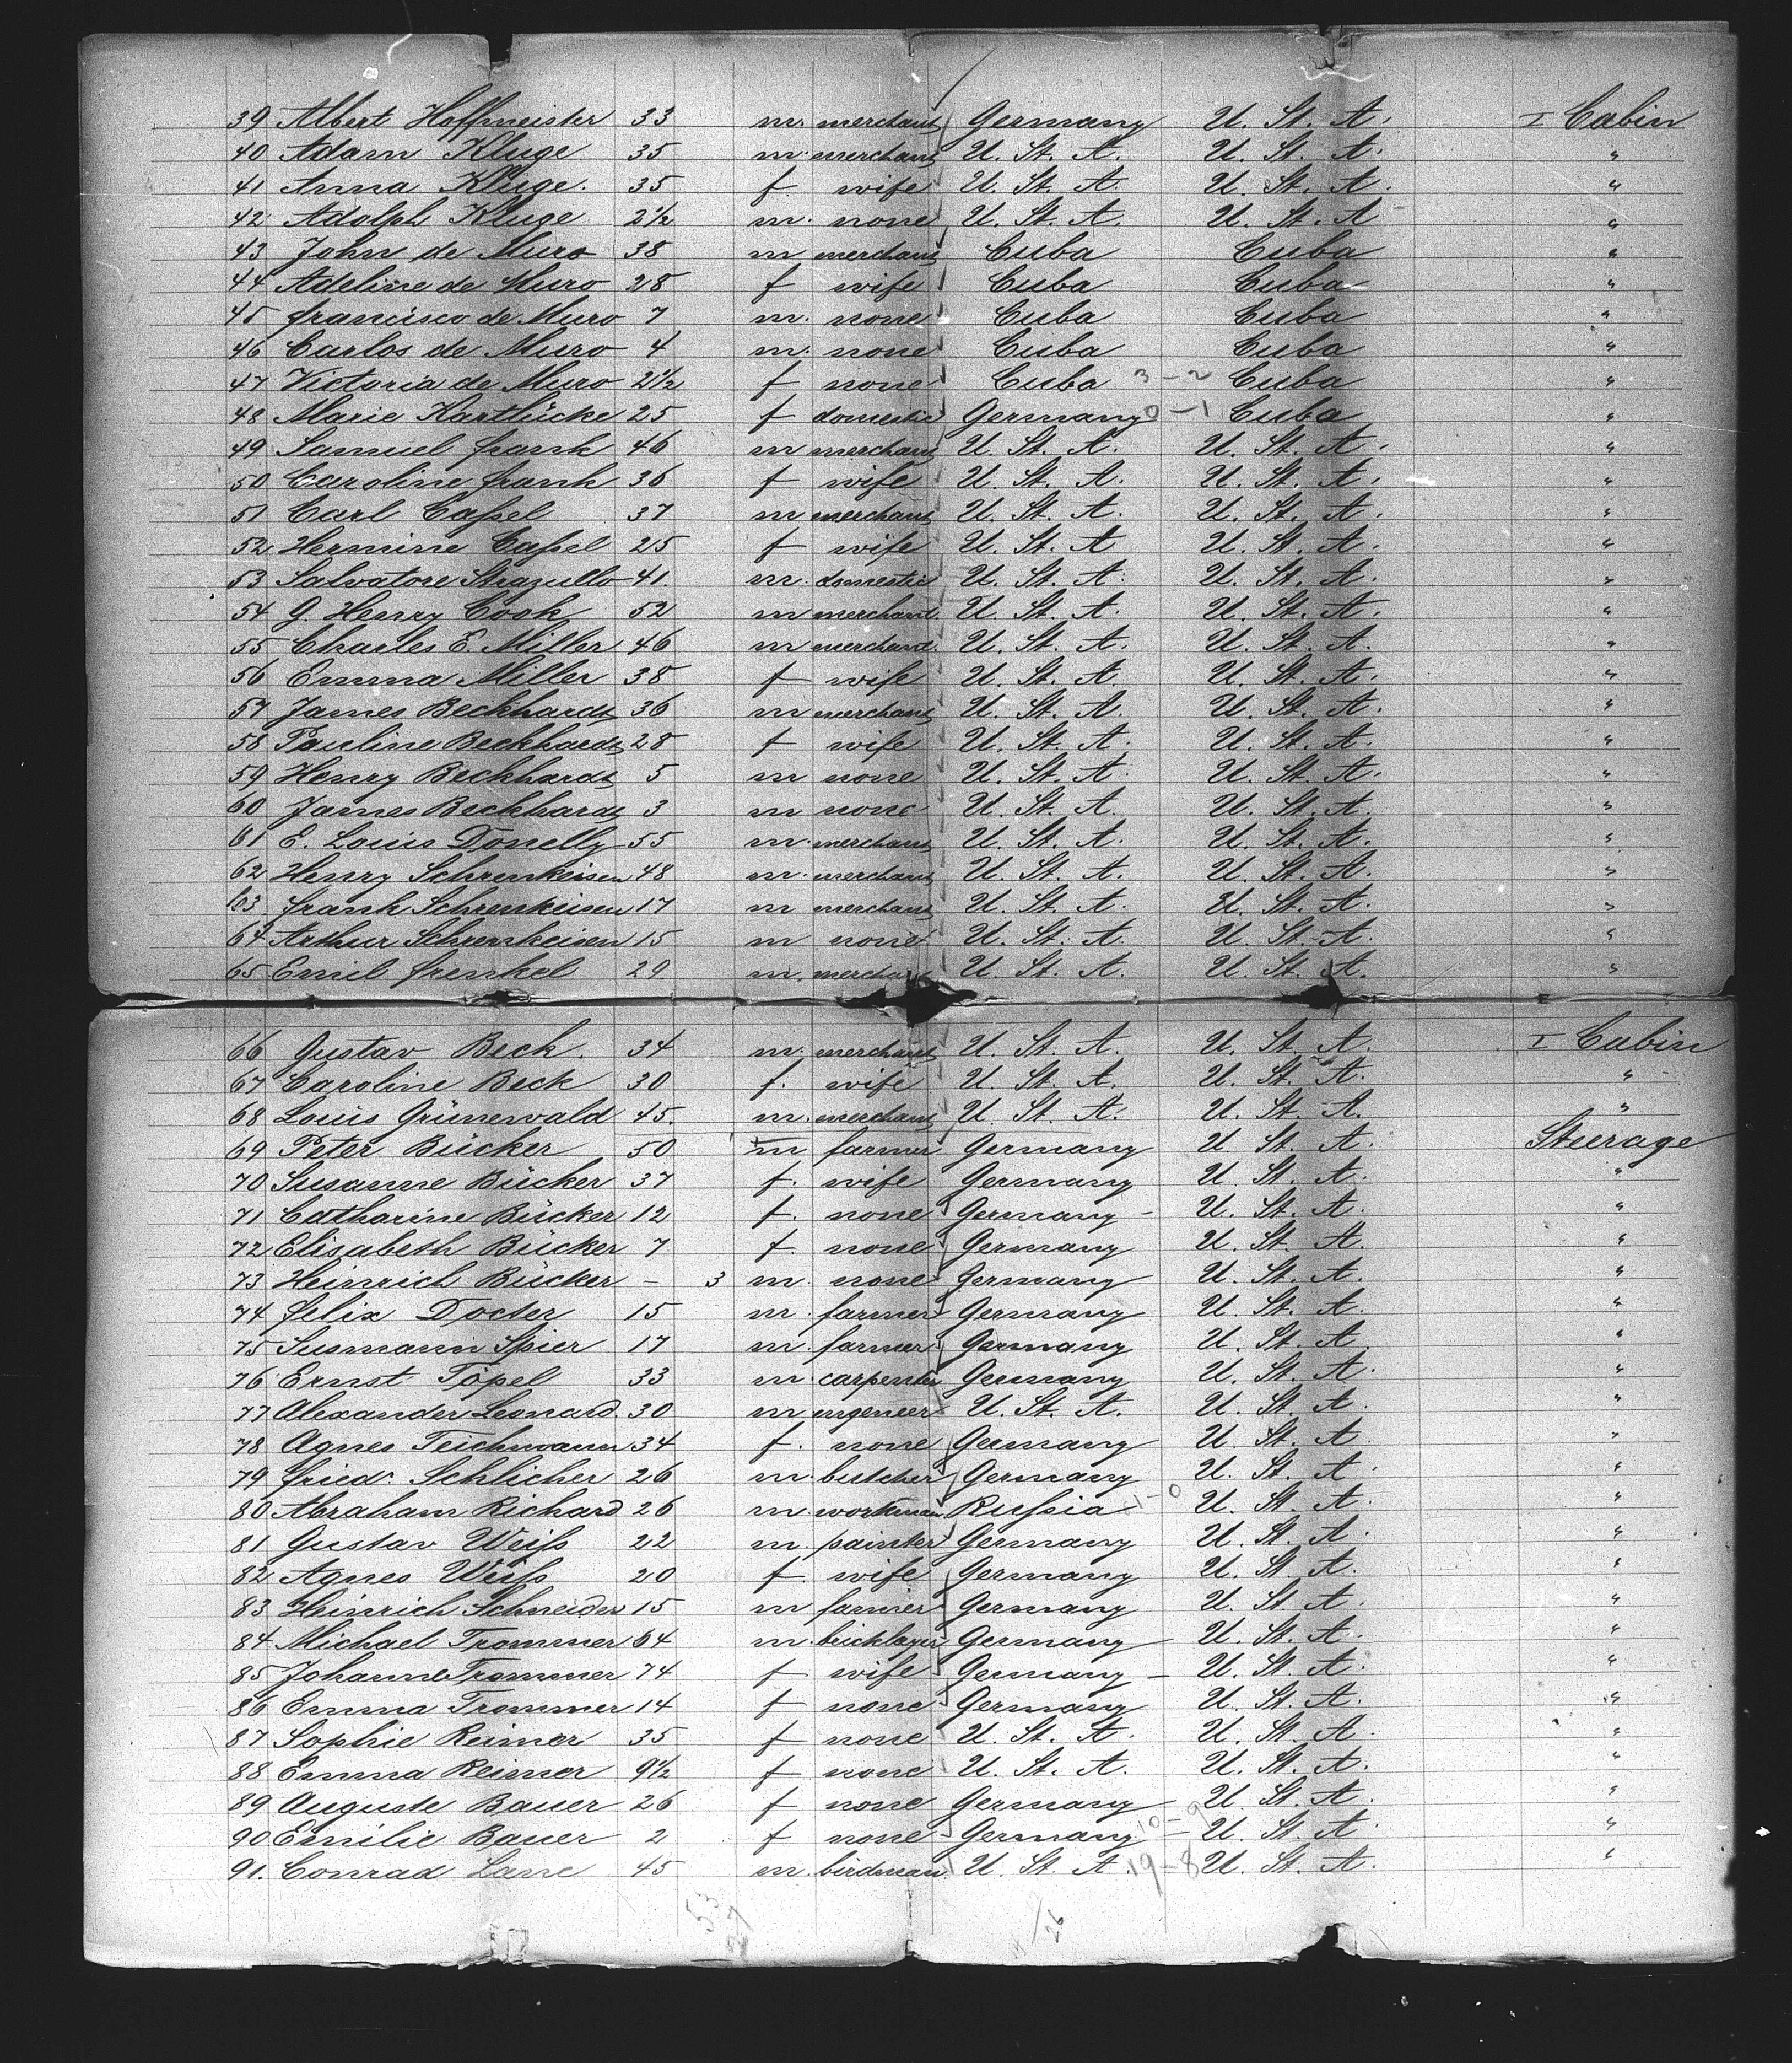 39 Albert Hoffmeister 33 m. merchant Germany U. St. A. I Cabin
40 Adam Kluge 35 m. merchant U. St. A. U. St. A. "
41 Anna Kluge. 35 f wife U. St. A. U. St. A. "
42 Adolph Kluge 2½ m. none U. St. A. U. St. A "
43 John de Muro 38 m merchant Cuba Cuba "
44 Adeline de Muro 28 f wife Cuba Cuba "
45 Francisco de Muro 7 m. none Cuba Cuba "
46 Carlos de Muro 4 m. none Cuba Cuba "
47 Victoria de Muro 2½ f none Cuba 3-2 Cuba "
48 Marie Kartlücke 25 f domestic Germany 0-1 Cuba "
49 Samuel Frank 46 m merchant U. St. A. U. St. A. "
50 Caroline Frank 36 f wife U. St. A. U. St. A. "
51 Carl Caſsel 37 m merchant U. St. A. U. St. A. "
52 Hermine Caſsel 25 f wife U. St. A U. St. A. "
53 Salvatore Strazullo 41. m. domestic U. St. A. U. St. A. "
54 G. Henry Cook 52 m merchant. U. St. A. U. St. A. "
55 Charles E. Miller 46 m merchant. U. St. A. U. St. A. "
56 Emma Miller 38 f wife U. St. A. U. St. A. "
57 James Beckhardt 36 m merchant U. St. A. U. St. A. "
58 Pauline Beckhardt 28 f wife U. St. A. U. St. A. "
59 Henry Beckhardt 5 m none U. St. A. U. St. A. "
60 James Beckhardt 3 m none U. St. A. U. St. A. "
61 E. Louis Donelly 55 m. merchant U. St. A. U. St. A. "
62 Henry Schrenkeisen 48 m. merchant U. St. A. U. St. A. "
63 Frank Schrenkeisen 17 m merchant U. St. A. U. St. A. "
64 Arthur Schrenkeisen 15 m none U. St. A. U. St. A. "
65 Emil Frenkel 29 m. merchant U. St. A. U. St. A. "
66 Gustav Beck. 34 m. merchant U. St. A. U. St. A. I Cabin
67 Caroline Beck 30 f. wife U. St. A. U. St. A. "
68 Louis Grünewald 45. m. merchant U. St. A. U. St. A. "
69 Peter Bücker 50 m farmer Germany U. St. A. Steerage
70 Susanne Bücker 37 f. wife Germany U. St. A. "
71 Catharine Bücker 12 f. none Germany - U. St. A. "
72 Elisabeth Bücker 7 f none Germany U. St. A. "
73 Heinrich Bücker - 3 m. none Germany U. St. A. "
74 Felix Docter 15 m. farmer Germany U. St. A. "
75 Susmann Spier 17 m. farmer Germany U. St. A. "
76 Ernst Töpel 33 m. carpenter Germany U. St. A. "
77 Alexander Leonard. 30 m engeneer U. St. A. U. St. A. "
78 Agnes Teichmann 34 f. none Germany U. St. A. "
79 Fried. Schlicher 26 m. butcher Germany U. St. A. "
80 Abraham Richard 26 m. workman Ruſsia 1-0 U. St. A. "
81 Gustav Weiſs 22 m. painter Germany U. St. A. "
82 Agnes Weiſs 20 f. wife Germany U. St. A. "
83 Heinrich Schneider 15 m farmer Germany U. St. A. "
84 Michael Trommer 64 m. bricklayer Germany - U. St. A. "
85 Johanne Trommer 74 f wife Germany - U. St. A. "
86 Emma Trommer 14 f none Germany U. St. A. "
87 Sophie Reimer 35 f none U. St. A. U. St. A. "
88 Emma Reimer 9½ f none U. St. A. U. St. A. "
89 Auguste Bauer 26 f none Germany U. St. A. "
90 Emilie Bauer 2 f none Germany 10-9 U. St. A. "
91. Conrad Lane 45 m. birdman. U. St. A. 19-8 U. St. A. "
53
27
26